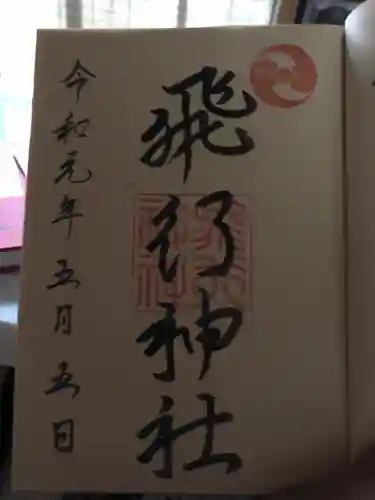 飛行神社
令和元年五月五日